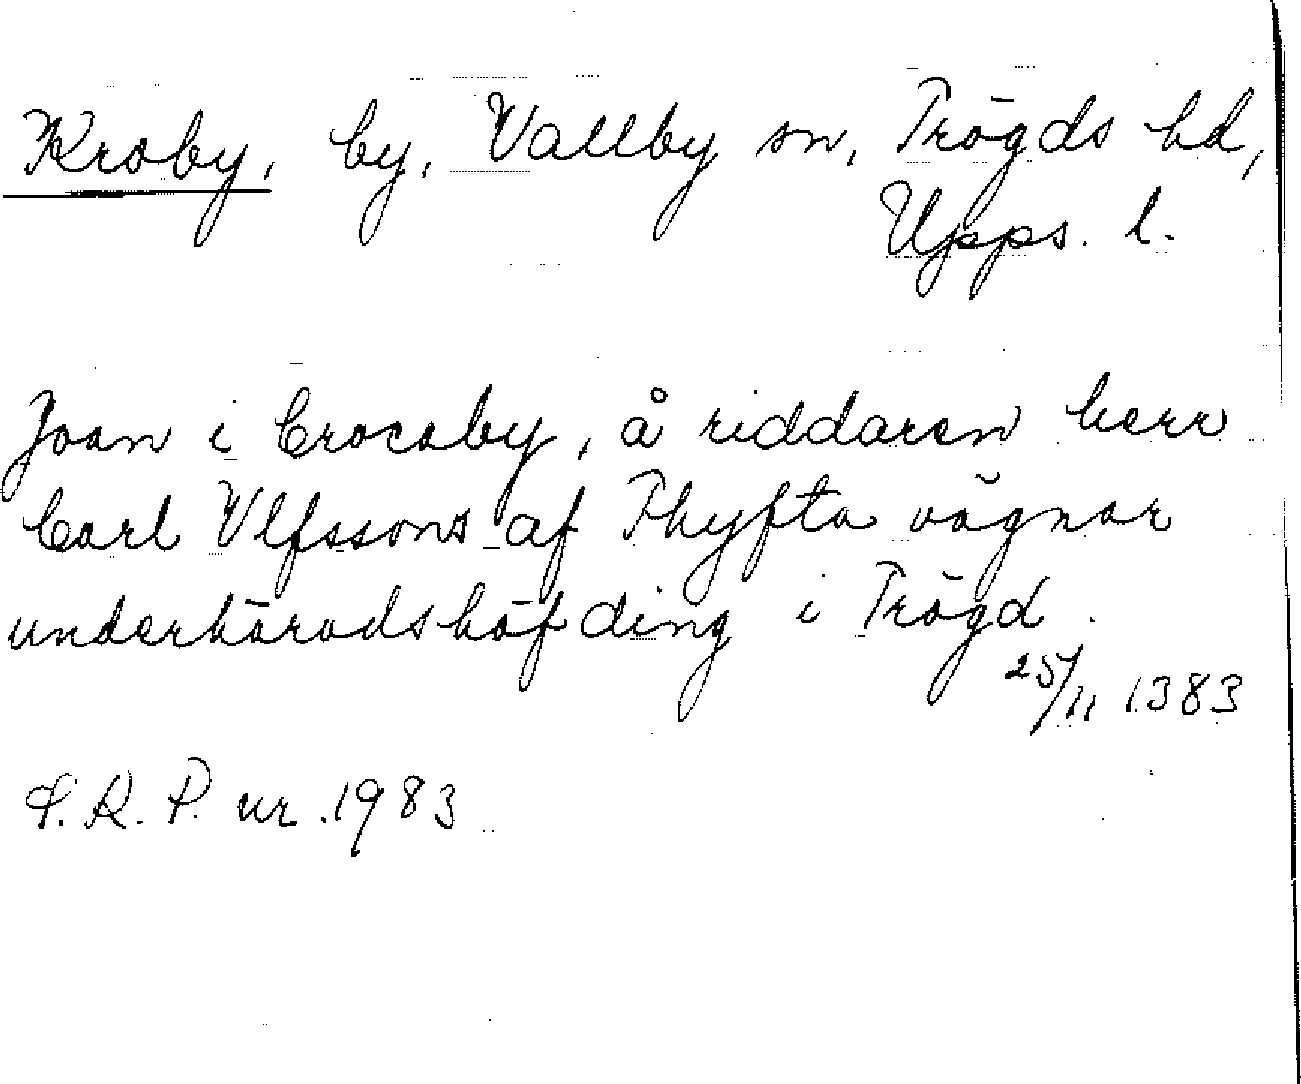 Kroby, by, Vallby sn, Trögds hd,
Upps. l.
Joan i Crocaby, å riddaren herr
Carl Vlfssons af Thyfta vägnar
underhäradshöfding i Trögd.
25/11 1383
S.R.P. nr. 1983